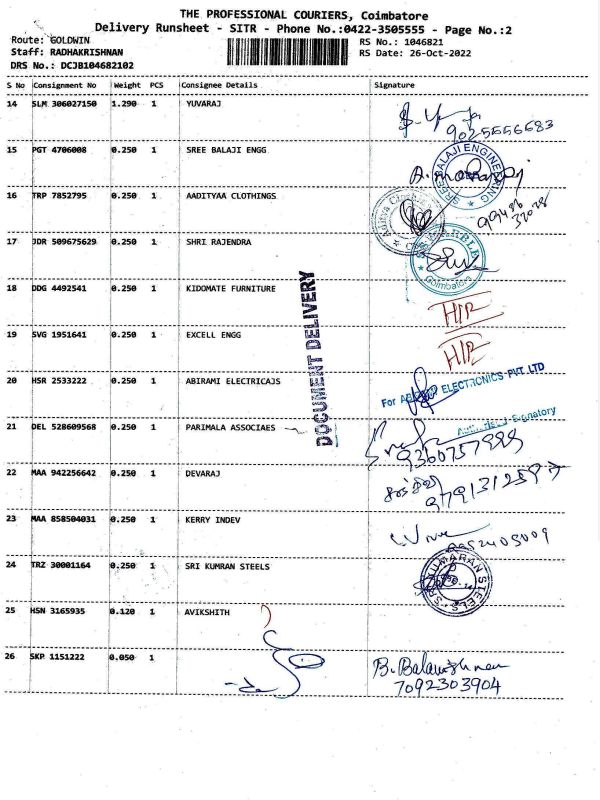 THE PROFESSIONAL COURIERS, Coimbatore
Delivery Runsheet - SITR - Phone No.:0422-3505555 - Page No.:2
Route: GOLDWIN RS No.: 1046821
Staff: RADHAKRISHNAN RS Date: 26-Oct-2022
DRS No.: DCJB104682102
S No Consignment No Weight PCS Consignee Details Signature
14 SLM 306027150 1.290 1 YUVARAJ
9025556683
15 PGT 4706008 0.250 1 SREE BALAJI ENGG
SREE BALAJI ENGINEERING
16 TRP 7852795 0.250 1 AADITYAA CLOTHINGS
17 JDR 509675629 0.250 1 SHRI RAJENDRA
Coimbatore
18 DDG 4492541 0.250 1 KIDOMATE FURNITURE
DOCUMENT DELIVERY
19 SVG 1951641 0.250 1 EXCELL ENGG
20 HSR 2533222 0.250 1 ABIRAMI ELECTRICAJS
For ELECTRONICS PVT LTD
Signatory
21 DEL 528609568 0.250 1 PARIMALA ASSOCIAES
22 MAA 942256642 0.250 1 DEVARAJ
23 MAA 858504031 0.250 1 KERRY INDEV
24 TRZ 30001164 0.250 1 SRI KUMRAN STEELS
KUMARAN STEELS
25 HSN 3165935 0.120 1 AVIKSHITH
26 SKP 1151222 0.050 1
7092303904